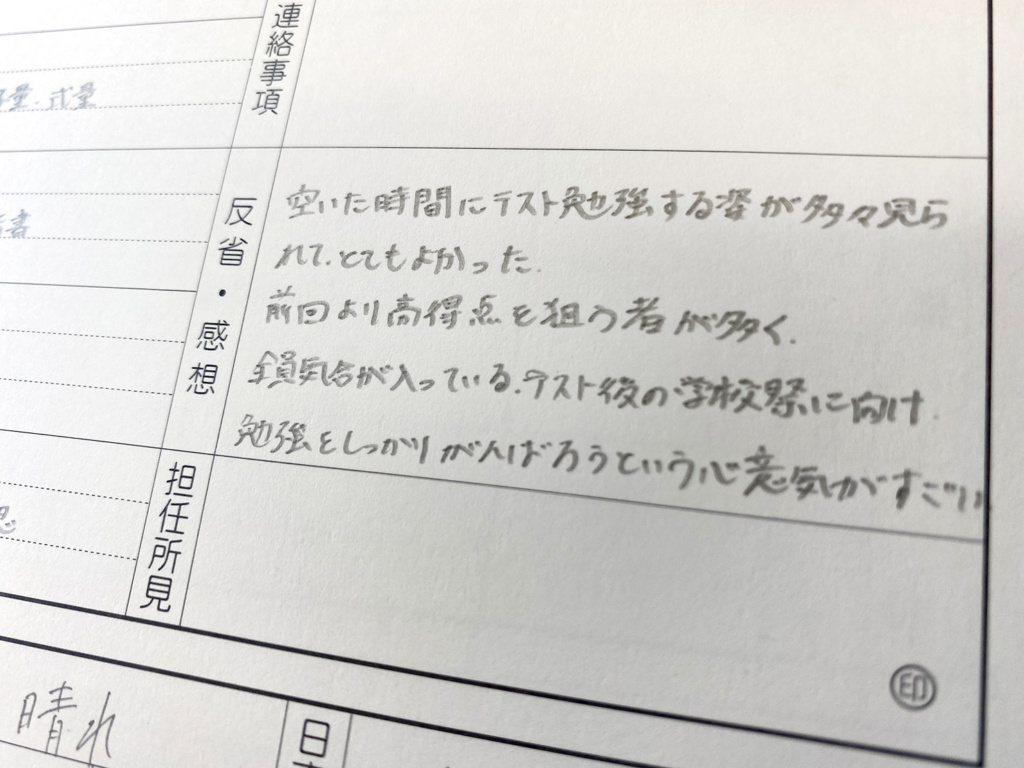 連絡事項
式量
反省・感想
空いた時間にテスト勉強する姿が多々見ら
れて、とてもよかった。
前回より高得点を狙う者が多く、
全員気合が入っている。テスト後の学校祭に向け、
勉強をしっかりがんばろうという心意気がすごい
担任所見
印
晴れ
日